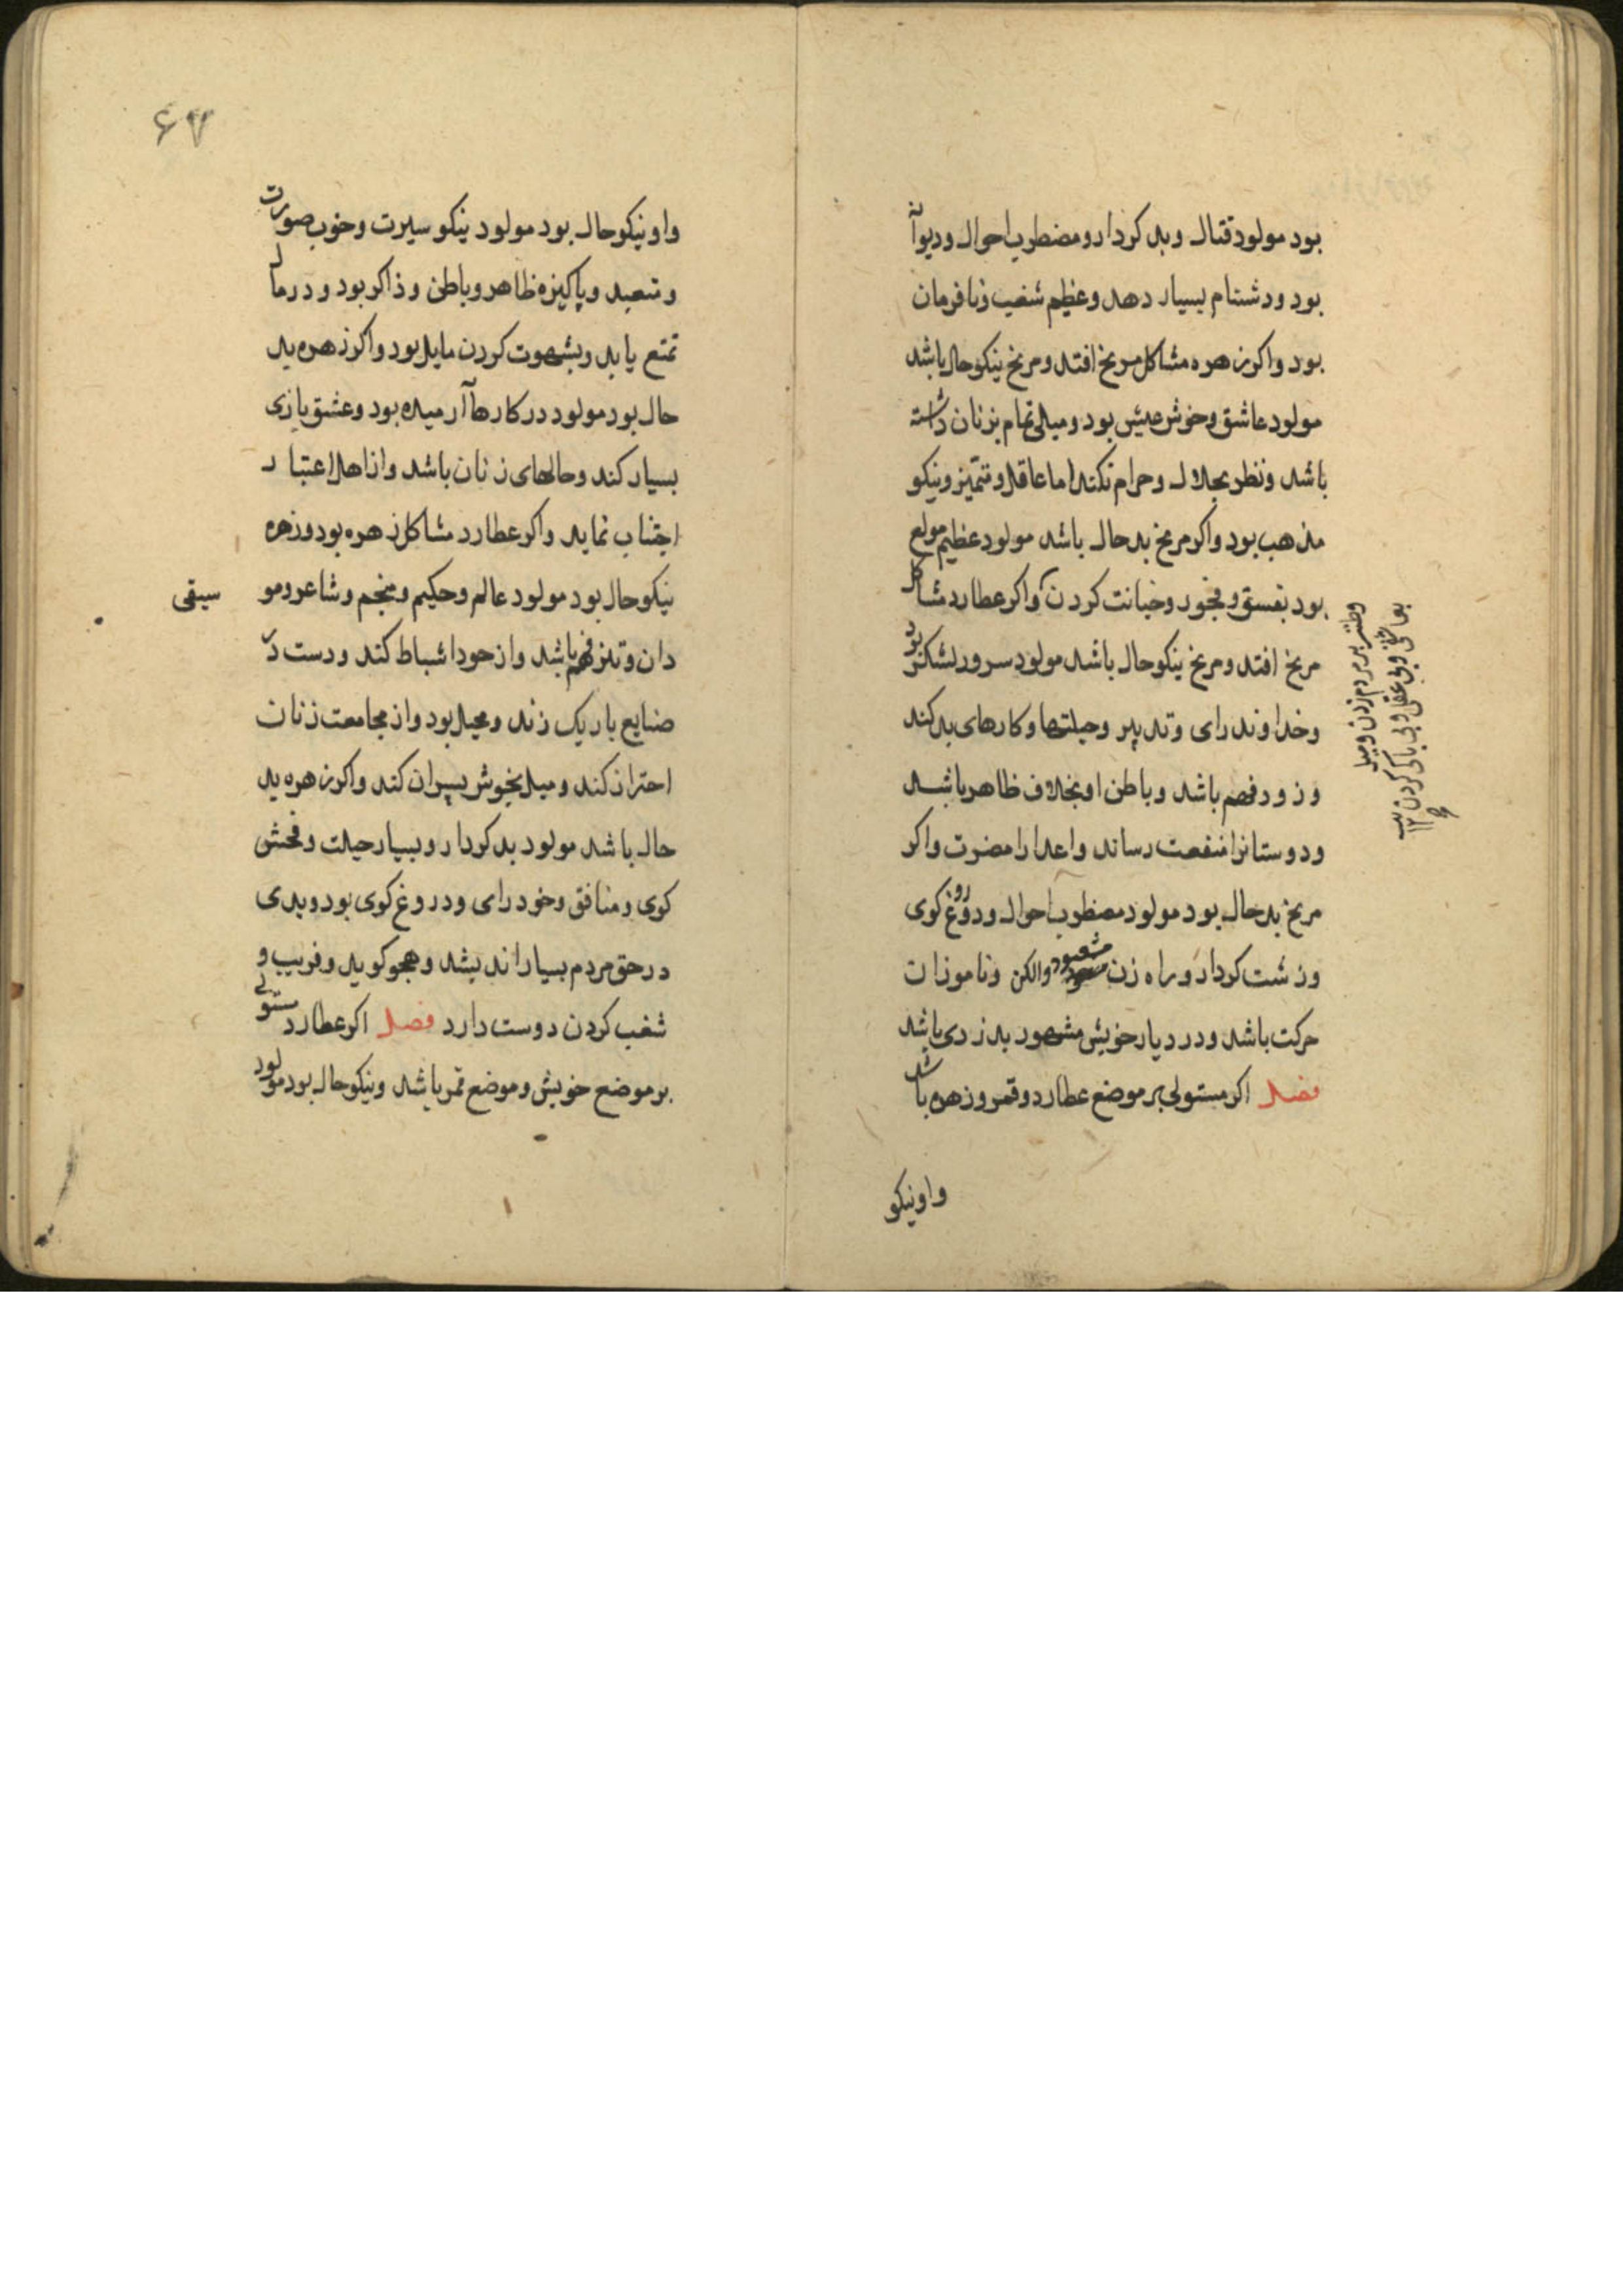 بود مولود قتال و بد کردار و مضطرب احوال و دیوانه
بود و دشنام بسیار دهد و عظیم شغب و نافرمان
بود و اکر زهره مشاکل مریخ افتد و مریخ نیکو حال باشد
مولود عاشق و خوش عیش بود و میلی تمام بزنان داشته
باشد و نظر بحلال و حرام نکند اما عاقل و متمیز و نیکو
مذهب بود و اکر مریخ بد حال باشد مولود عظیم مولع
بود بفسق و فجور و خیانت کردن و اکر عطارد مشاکل
مریخ افتد و مریخ نیکو حال باشد مولود سرور لشکر بود
و خداوند رای و تدبیر و حیلتها و کارهای بد کند
و زود فهم باشد و باطن او بخلاف ظاهر باشد
و دوستانرا منفعت رساند و اعدا را مضرت و اکر
مریخ بد حال بود مولود مضطرب احوال و دروغ کوی
و زشت کردار و راه زن مشعبد و الکن و ناموزان
حرکت باشد و در دیار خویش مشهور بدزدی باشد
فصل اکر مستولی بر موضع عطارد و قمر و زهره باشد
و طنز بر مردم زدن و میل
بعاشقی و بی عقلی و بی باکی کردن
واونیکو
۶۷
و او نیکو حال بود مولود نیکو سیرت و خوب صورت
و متعبد و پاکیزه ظاهر و باطن و ذاکر بود و در مال
تمتع یابد و بشهوت کردن مایل بود و اکر زهره بد
حال بود مولود در کارها آرمیده بود و عشق بازی
بسیار کند و حالهای زنان باشد و از اهل اعتبار
اجتناب نماید و اکر عطارد مشاکل زهره بود و زهره
نیکو حال بود مولود عالم و حکیم و منجم و شاعر و مو
سیقی
دان و تیز فهم باشد و از خود استنباط کند و دست در
صنایع باریک زند و محیل بود و از مجامعت زنان
احتراز کند و میل بخوش پسران کند و اکر زهره بد
حال باشد مولود بد کردار و بسیار حیلت و فحش
کوی و منافق و خود رای و دروغ کوی بود و بدی
در حق مردم بسیار اندیشد و هجو کوید و فریب و
شغب کردن دوست دارد فصل اکر عطارد مستولی
بر موضع خویش و موضع قمر باشد و نیکو حال بود مولود